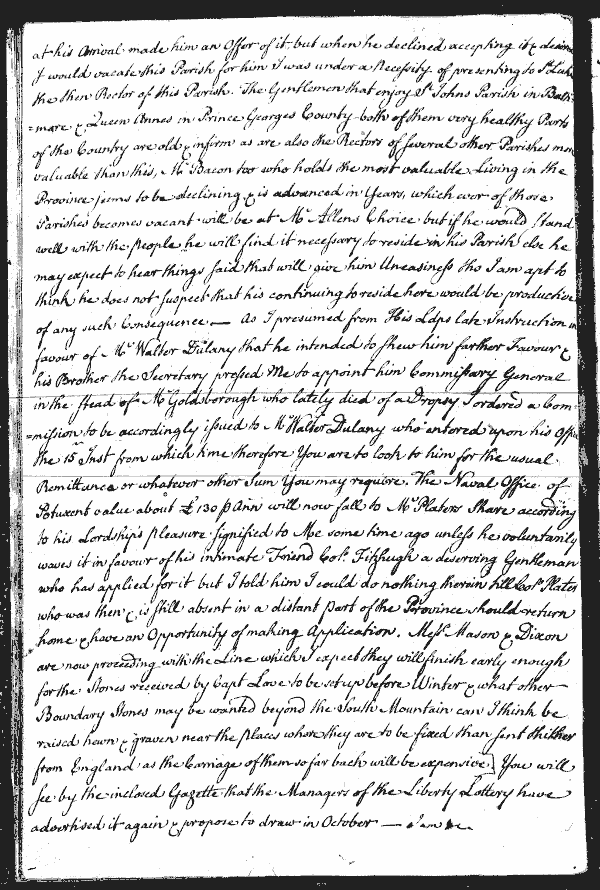 at his Arrival made him an Offer of it but when he declined accepting it & desired
I would vacate this Parish for him I was under a Necessity of presenting to St Lukes
the then Rector of this Parish. The Gentlemen that enjoy St Johns Parish in Balti
=more & Queen Annes in Prince Georges County both of them very healthy Parts
of the Country are old & infirm as are also the Rectors of several other Parishes more
valuable than this, Mr Bacon too who holds the most valuable Living in the
Province seems to be declining & is advanced in Years, which ever of those
Parishes becomes vacant will be at Mr Allens Choice but if he would stand
well with the People he will find it necessary to reside in his Parish else he
may expect to hear things said that will give him Uneasiness tho I am apt to
think he does not suspect that his continuing to reside here would be productive
of any such Consequence — As I presumed from His Ldps late Instruction in
favour of Mr Walter Dulany that he intended to shew him farther Favour &
his Brother the Secretary pressed Me to appoint him Commissary General
in the stead of Mr Goldsborough who lately died of a Dropsy I ordered a Com
=mission to be accordingly issued to Mr Walter Dulany who entered upon his Office
the 15 Inst from which time therefore You are to look to him for the usual
Remittance or whatever other Sum You may require. The Naval Office of
Potuxent value about £130 p Ann will now fall to Mr Platers Share according
to his Lordships Pleasure signified to Me some time ago unless he voluntarily
waves it in favour of his intimate Friend Colo. Fitzhugh a deserving Gentleman
who has applied for it but I told him I could do nothing therein till Colo. Plater
who was then & is still absent in a distant part of the Province should return
home & have an Opportunity of making Application. Messrs. Mason & Dixon
are now proceeding with the Line which I expect they will finish early enough
for the Stones received by Capt Love to be set up before Winter & what other
Boundary Stones may be wanted beyond the South Mountain can I think be
raised hewn & graven near the places where they are to be fixed than sent thither
from England as the Carriage of them so far back will be expensive] You will
see by the inclosed Gazette that the Managers of the Liberty Lottery have
advertised it again & propose to draw in October — I am &c.